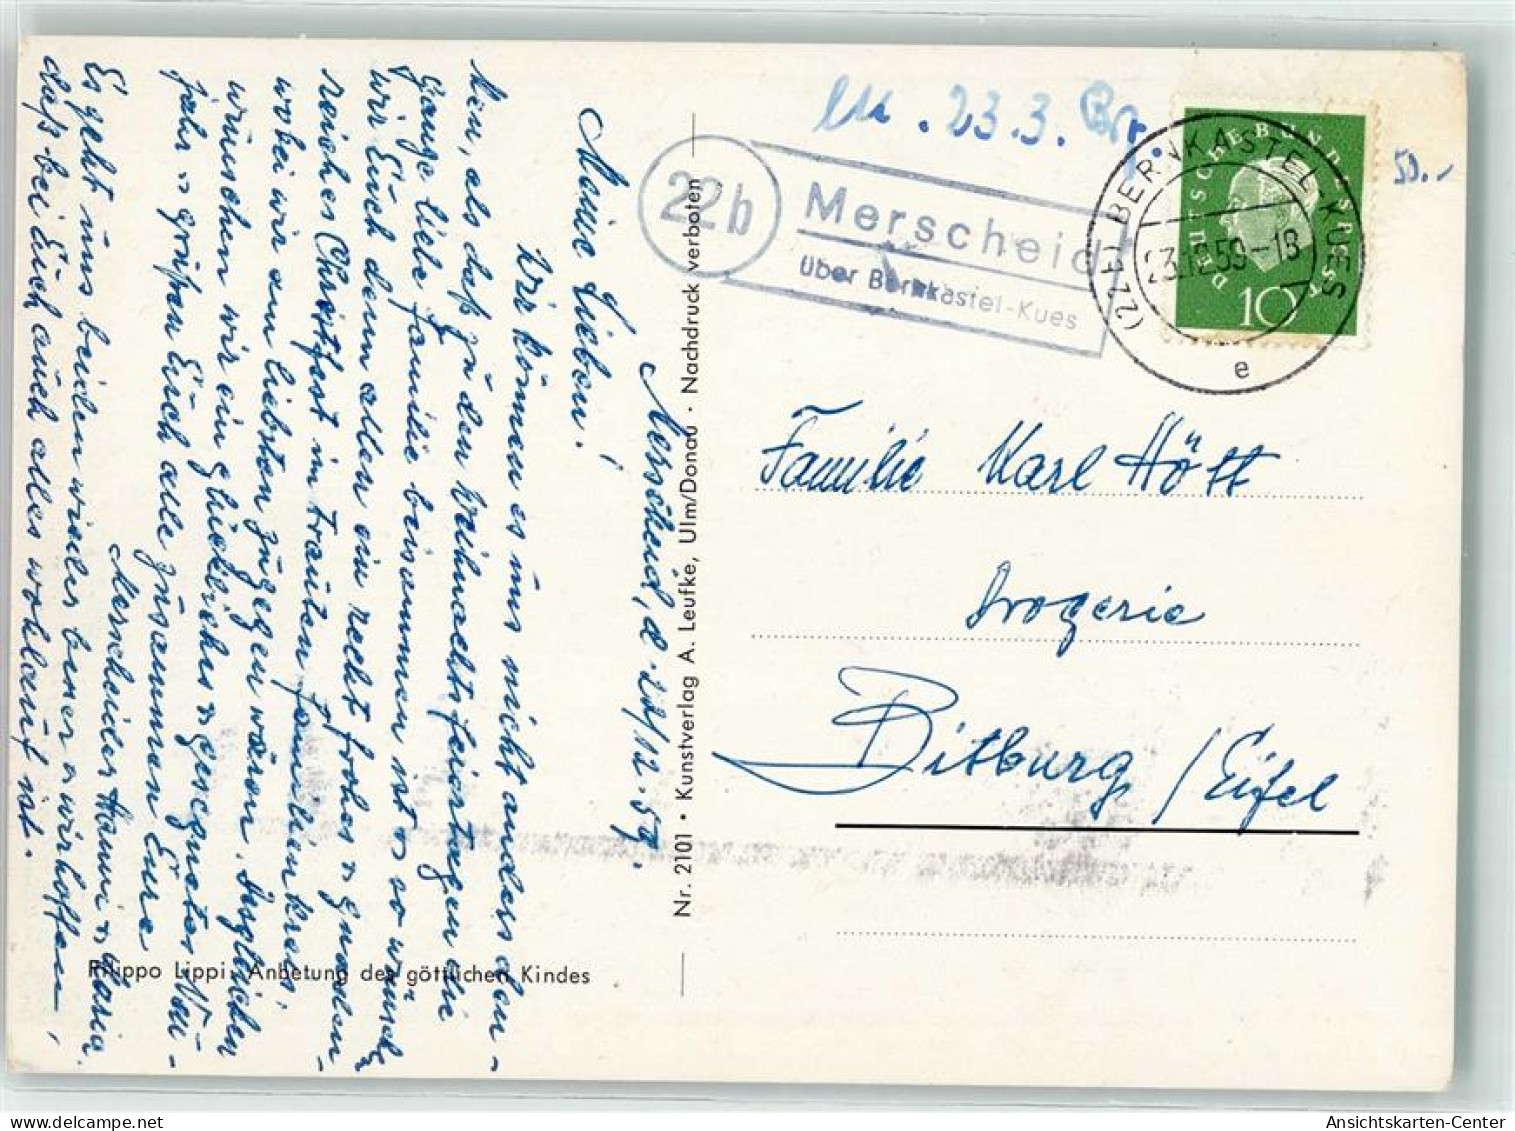 Merscheid, d. 22/12.59.
Meine Lieben!
Wir können es uns nicht anders den-
ken, als daß zu den Weihnachtsfeiertagen die
ganze liebe Familie beisammen ist u. so wünschen
wir Euch denn allen ein recht frohes u. gnaden-
reiches Christfest im trauten Familienkreis,
wobei wir am liebsten zugegen wären. Desgleichen
wünschen wir ein glückliches u. gesegnetes Neu-
jahr u. grüßen Euch alle zusammen Eure
Merscheider Hanni u. Maria.
Es geht uns beiden wieder besser u. wir hoffen,
daß bei Euch auch alles wohlauf ist.
Filippo Lippi: Anbetung des göttlichen Kindes
Nr. 2101 • Kunstverlag A. Leufke, Ulm/Donau • Nachdruck verboten
22b
Merscheid
über Bernkastel-Kues
23.3.
50.-
(22b) BERNKASTEL-KUES
23.12.59-18
e
DEUTSCHE BUNDESPOST
10
Familie Karl Hött
Drogerie
Bitburg/Eifel
Ansichtskarten-Center